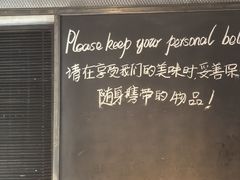 Please keep your personal bel
请在享受我们的美味时妥善保
随身携带的物品！